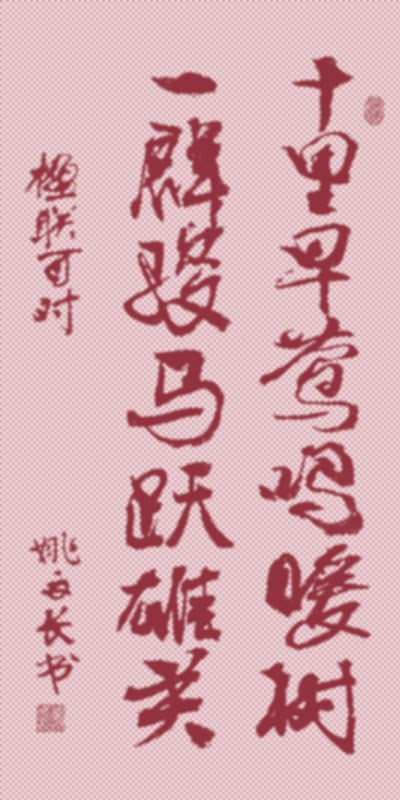 十里早莺鸣暖树
一群骏马跃雄关
楹联可对
姚长书